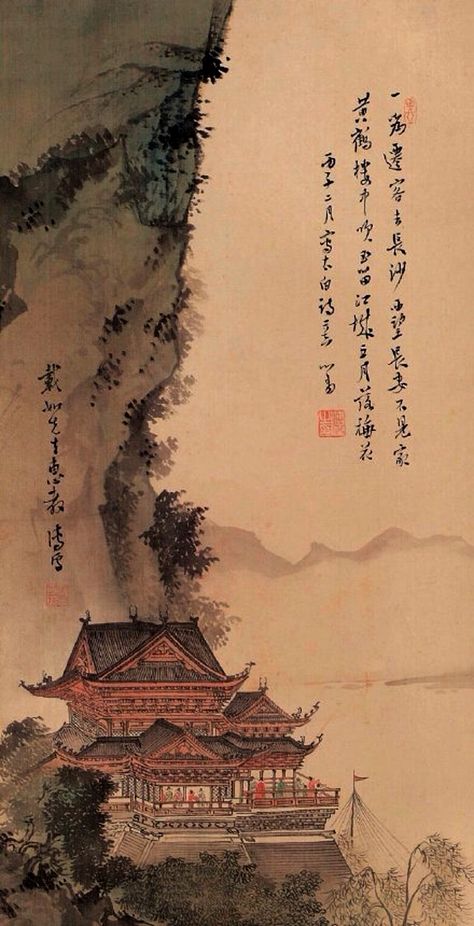 一為遷客去長沙西望長安不見家
黃鶴樓中吹玉笛江城五月落梅花
丙子二月寫太白詩意心畬
如先生惠教溥儒